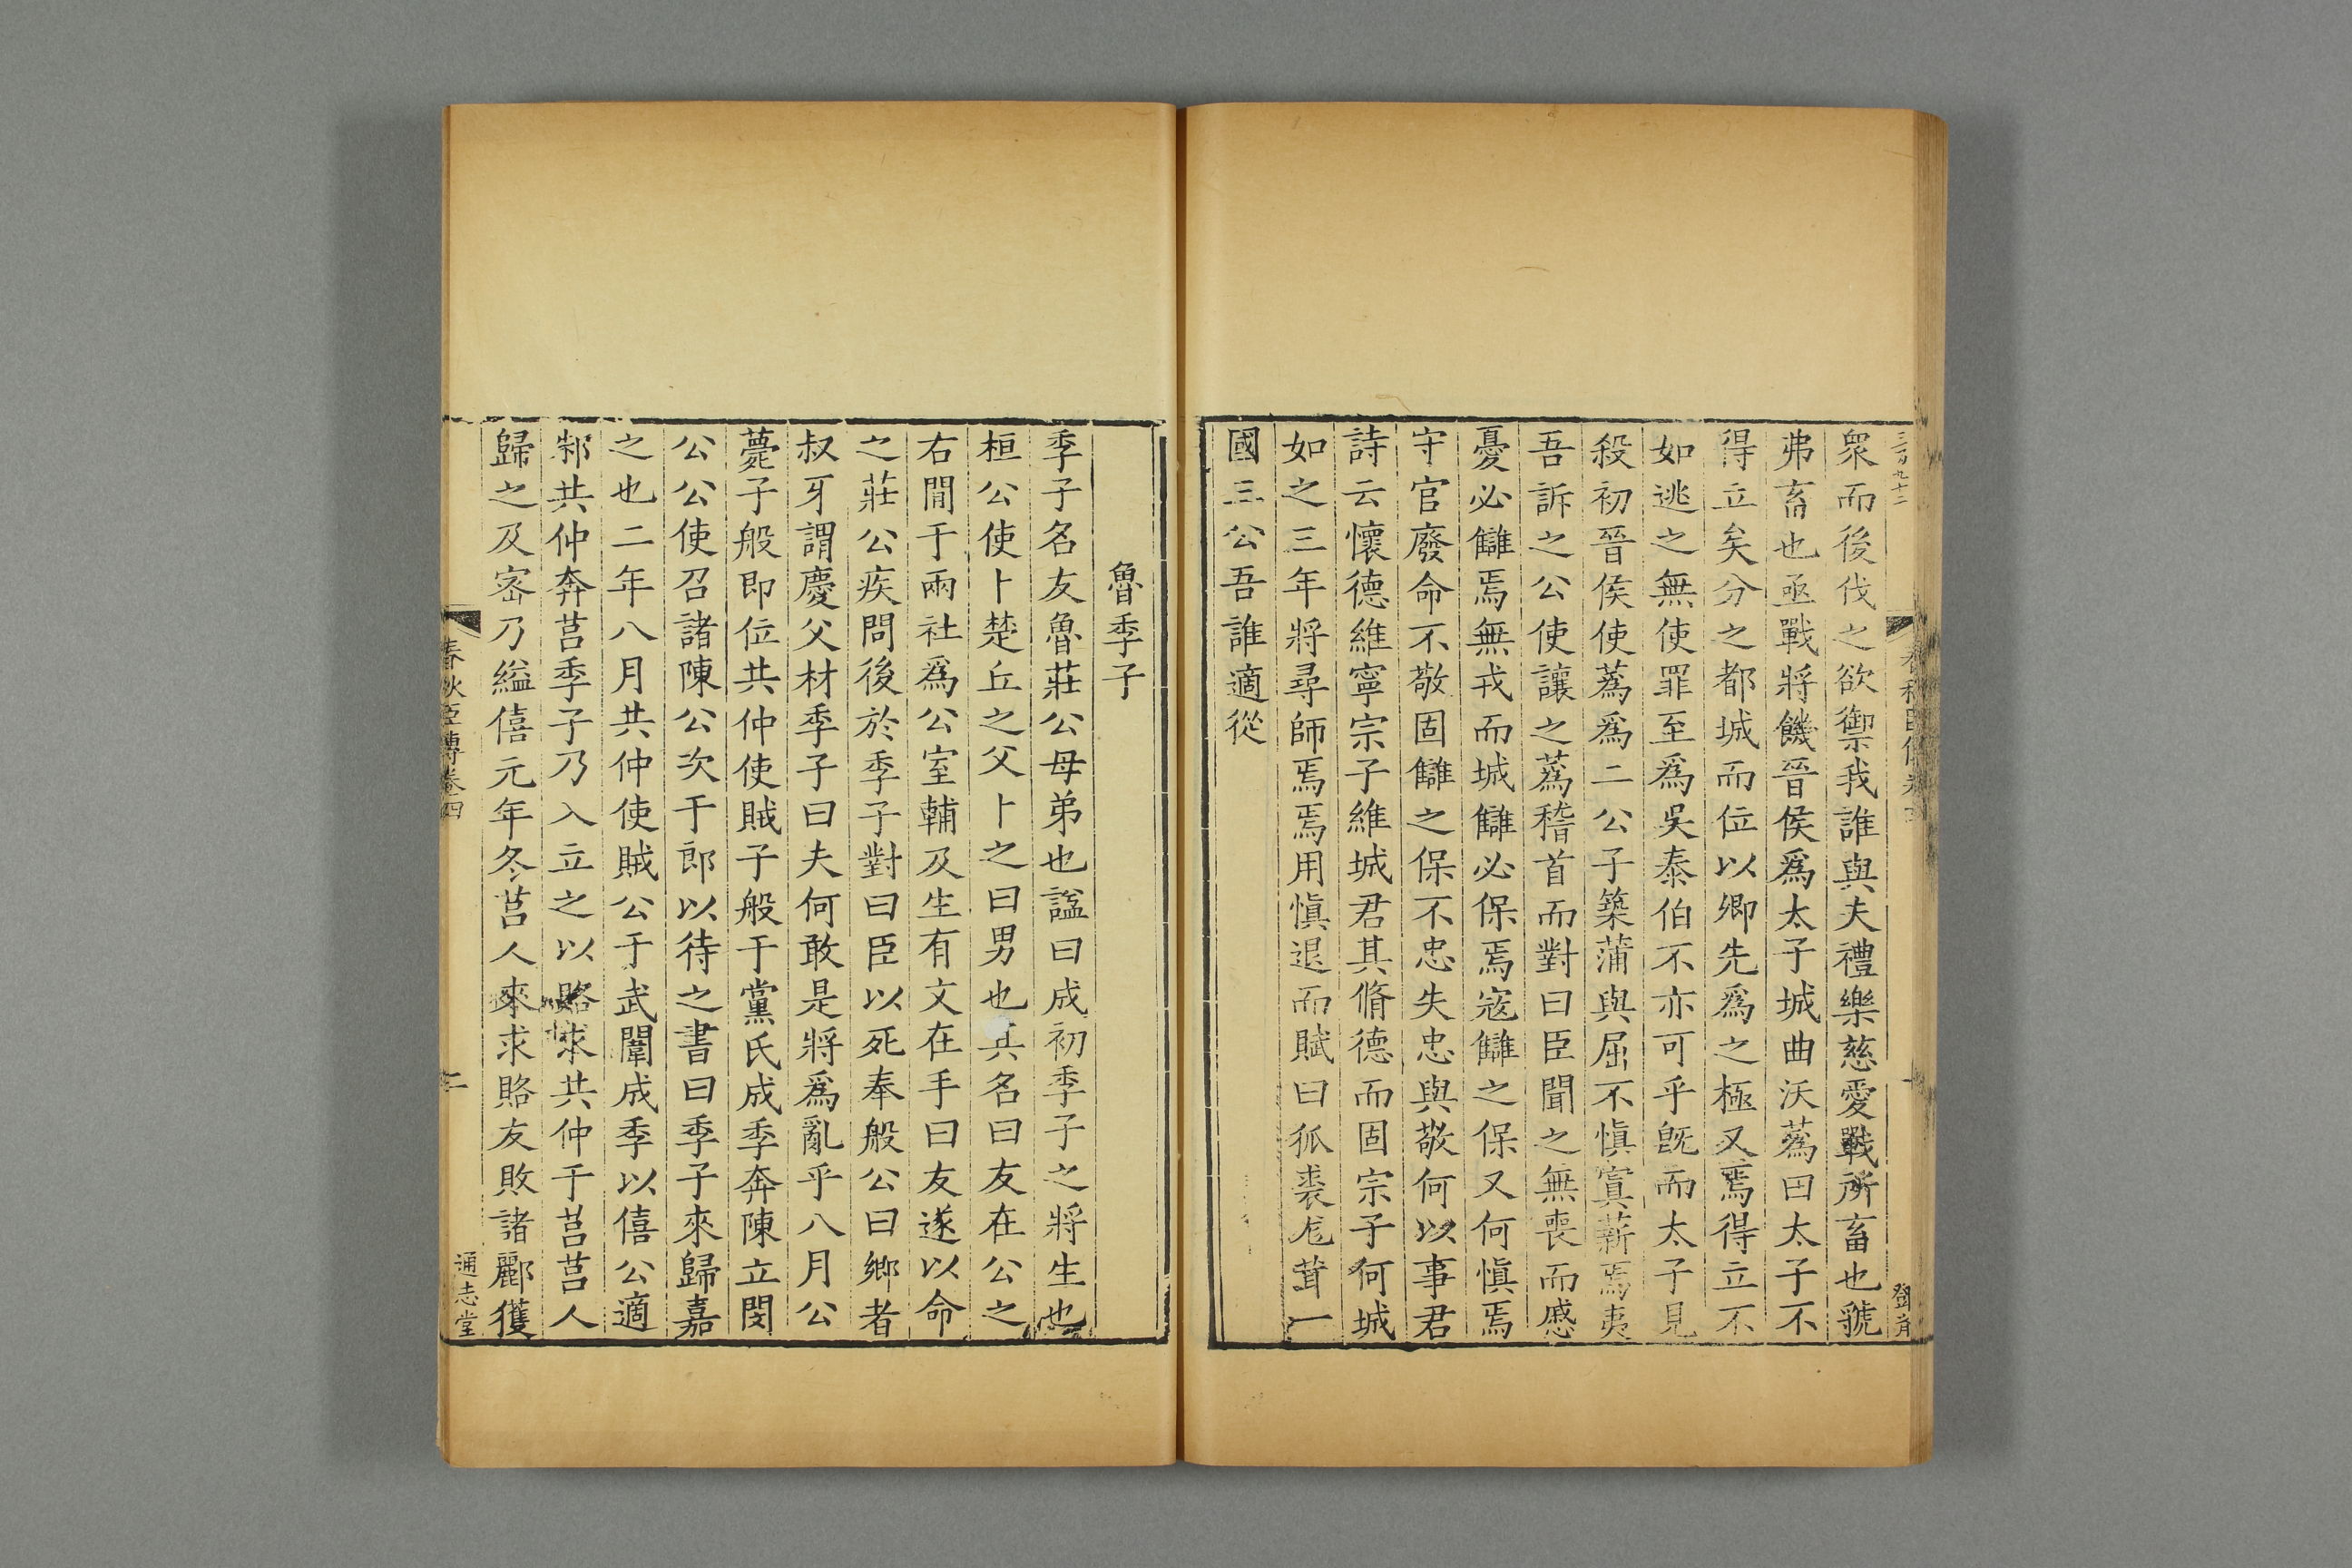 三百九十二
春秋臣傳卷四
眾而後伐之欲禦我誰與夫禮樂慈愛戰所畜也虢
弗畜也亟戰將饑晉侯爲太子城曲沃蒍曰太子不
得立矣分之都城而位以卿先爲之極又焉得立不
如逃之無使罪至爲吳泰伯不亦可乎旣而太子見
殺初晉侯使蒍爲二公子築蒲與屈不愼寘薪焉夷
吾訴之公使讓之蒍稽首而對曰臣聞之無喪而慼
憂必讎焉無戎而城讎必保焉寇讎之保又何愼焉
守官廢命不敬固讎之保不忠失忠與敬何以事君
詩云懷德維寧宗子維城君其脩德而固宗子何城
如之三年將尋師焉焉用愼退而賦曰狐裘尨茸一
國三公吾誰適從
魯季子
季子名友魯莊公母弟也諡曰成初季子之將生也
桓公使卜楚丘之父卜之曰男也其名曰友在公之
右間于兩社爲公室輔及生有文在手曰友遂以命
之莊公疾問後於季子對曰臣以死奉般公曰鄉者
叔牙謂慶父材季子曰夫何敢是將爲亂乎八月公
薨子般即位共仲使賊子般于黨氏成季奔陳立閔
公公使召諸陳公次于郎以待之書曰季子來歸嘉
之也二年八月共仲使賊公于武闈成季以僖公適
邾共仲奔莒季子乃入立之以賂求共仲于莒莒人
歸之及密乃縊僖元年冬莒人來求賂友敗諸酈獲
春秋臣傳卷四
二
通志堂